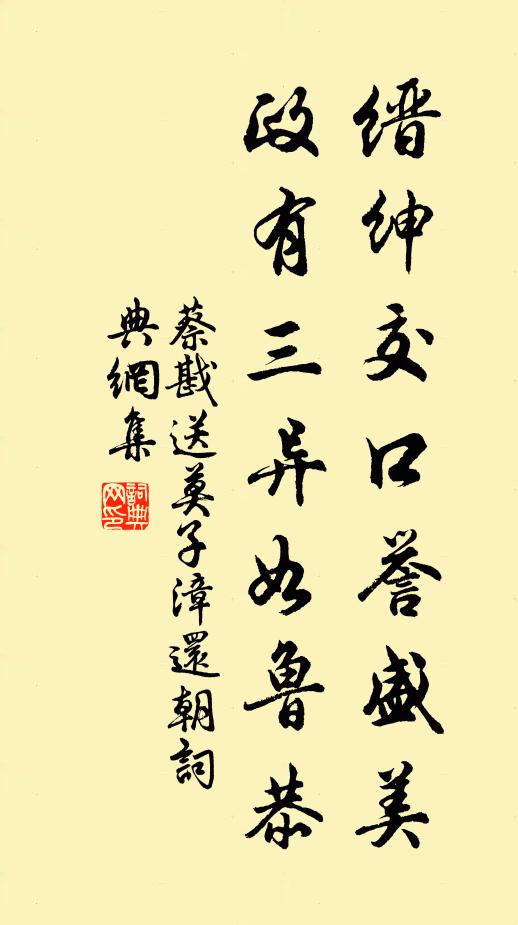 缙绅交口誉盛美
政有三异如鲁恭
蔡戡送莫子漳還朝詞
典網集
詞典
网印